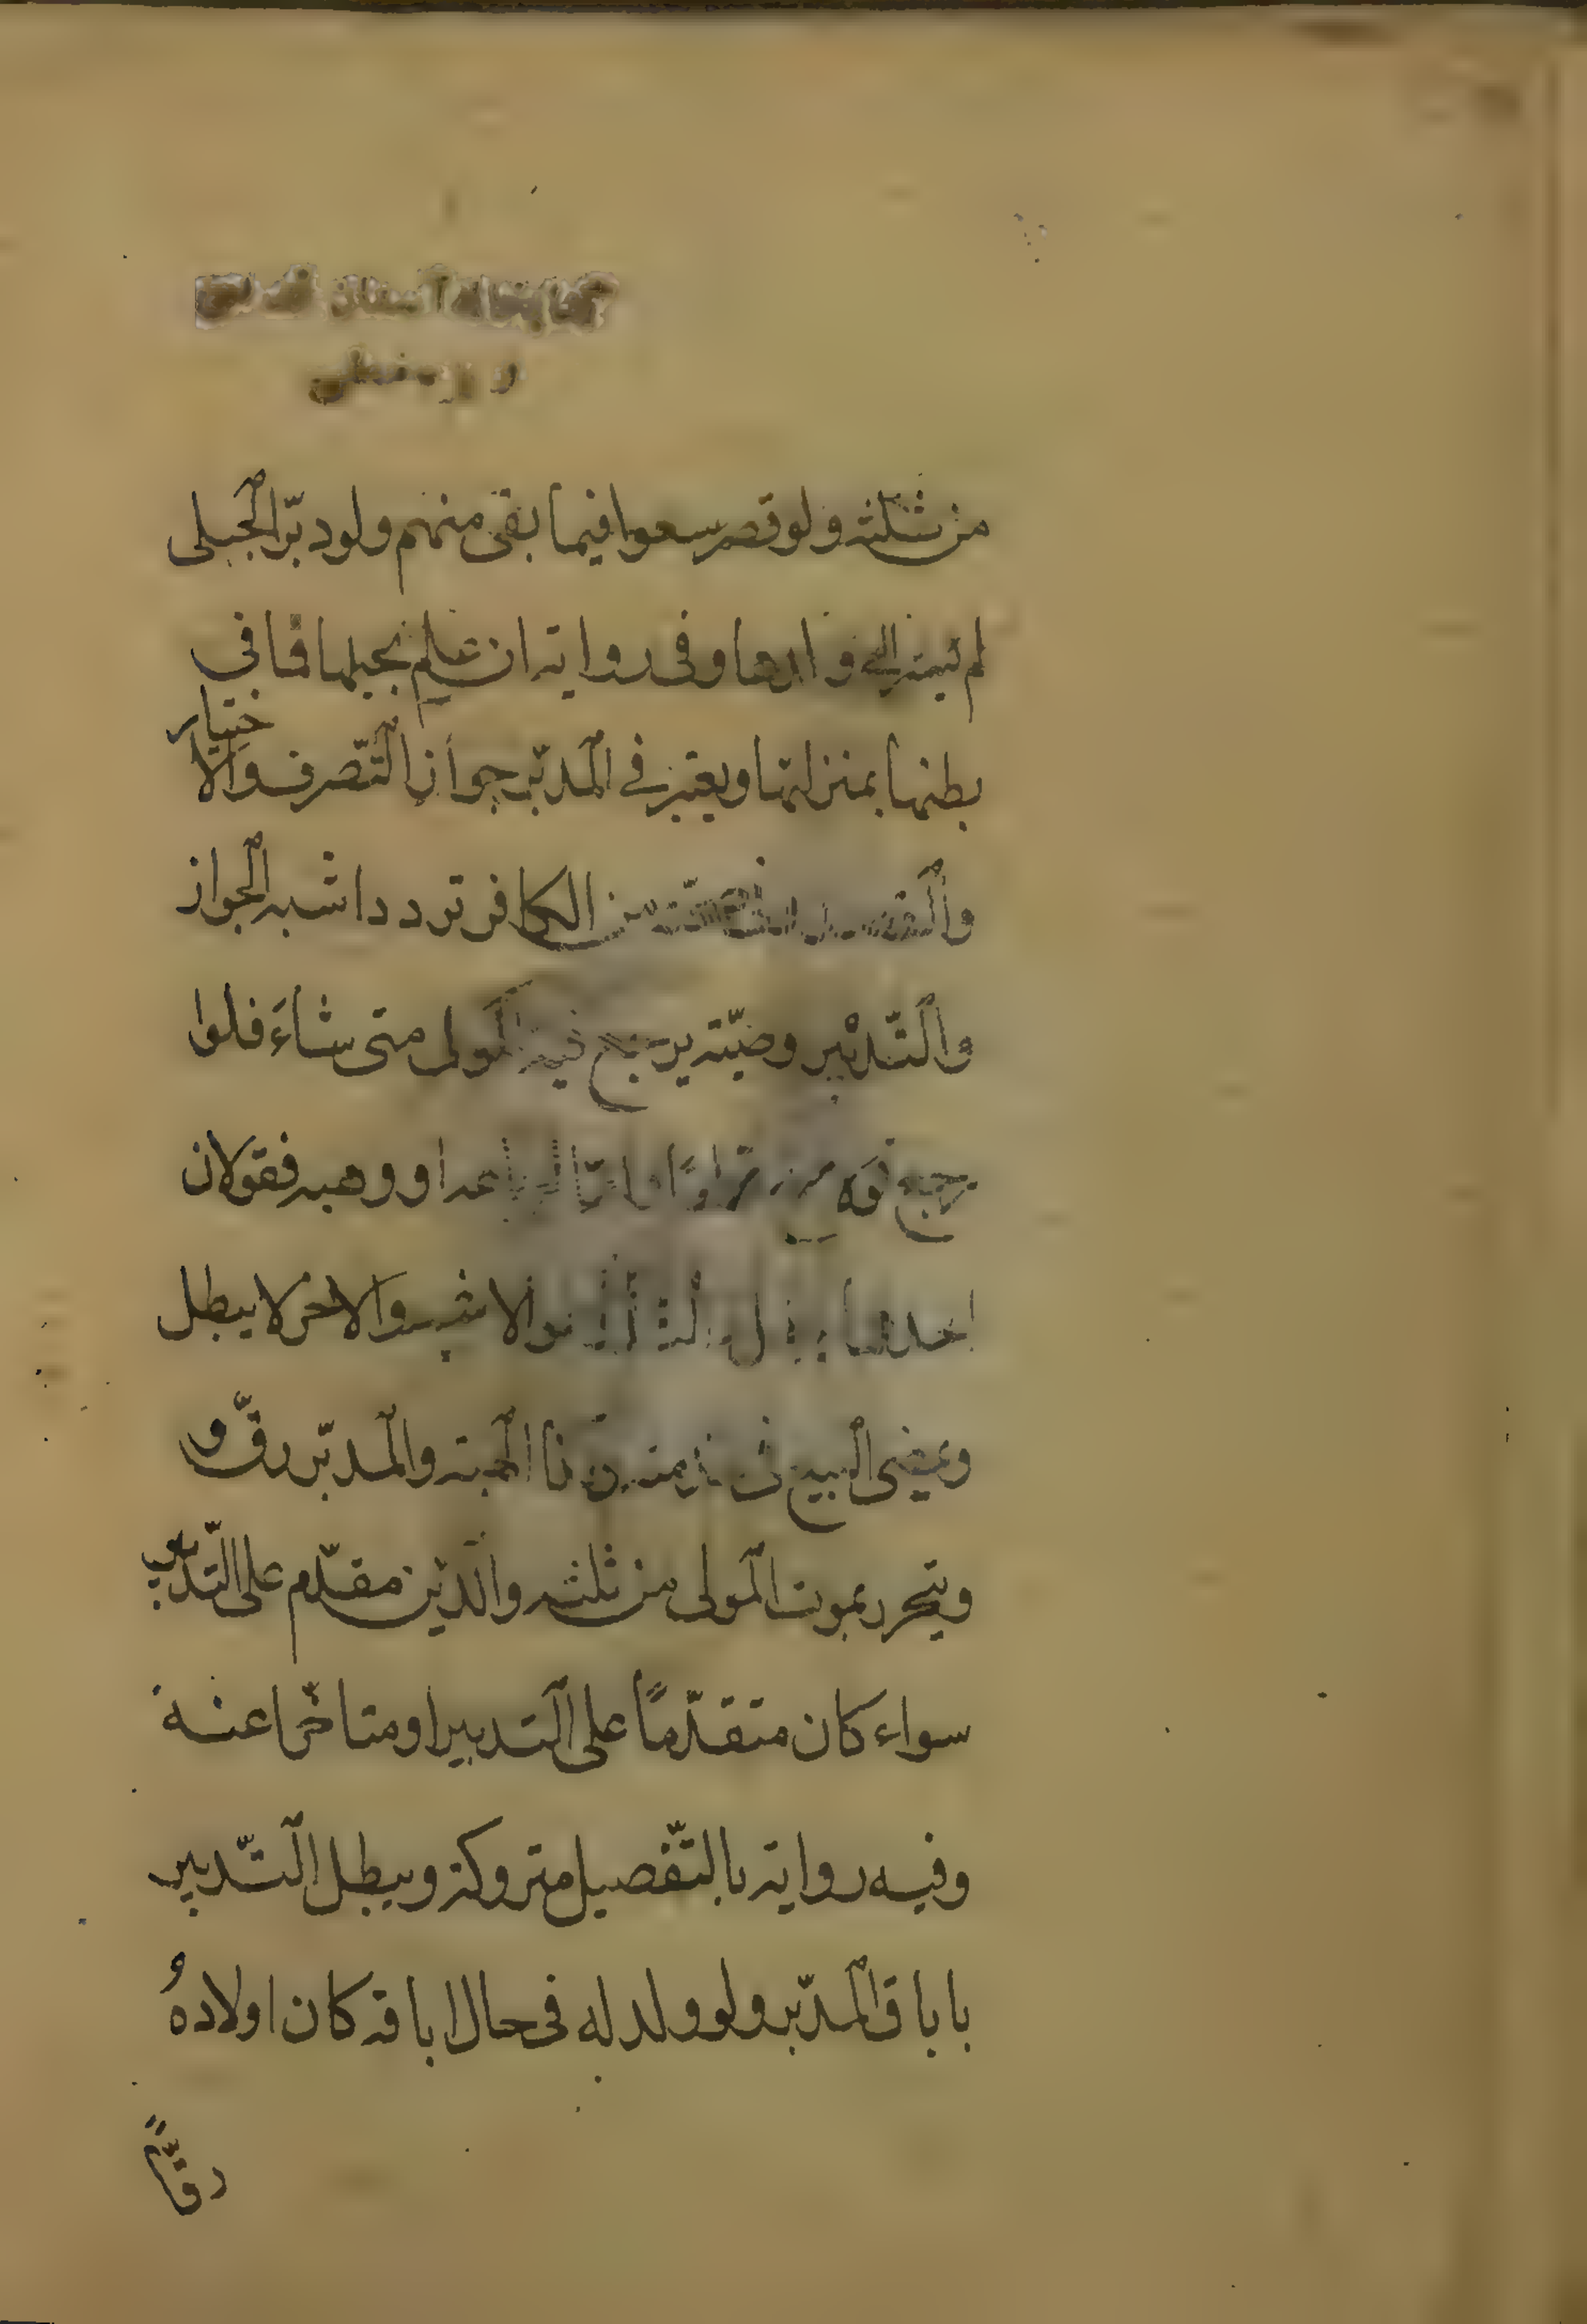 من ثلثه ولو قصر سعوا فيما بقى منهم ولو دبّر الحبلى
لم يسر الى ولدها وفى رواية ان علم بحبلها فما في
بطنها بمنزلتها ويعتبر في المدبّر جواز التّصرف والاختيار
والقصد من الكافر تردد اشبه الجواز
والتّدبير وصيّة يرجع فيه المولى متى شاءَ فلو
رجع قولا اما لو باعه او وهبه فقولان
احدهما يبطل التدبير وهو الاشبه والاخر لا يبطل
ويمضى البيع فى خدمته وكذا الهبة والمدبّر رقّ و
يتحرر بموت المولى من ثلثه والدّين مقدّم على التّدبير
سواء كان متقدّمًا على التدبير او متاخّرا عنه
وفيه رواية بالتّفصيل متروكة ويبطل التّدبير
باباق المدبّر ولو ولد له فى حال اباقه كان اولادهُ
رقًّا